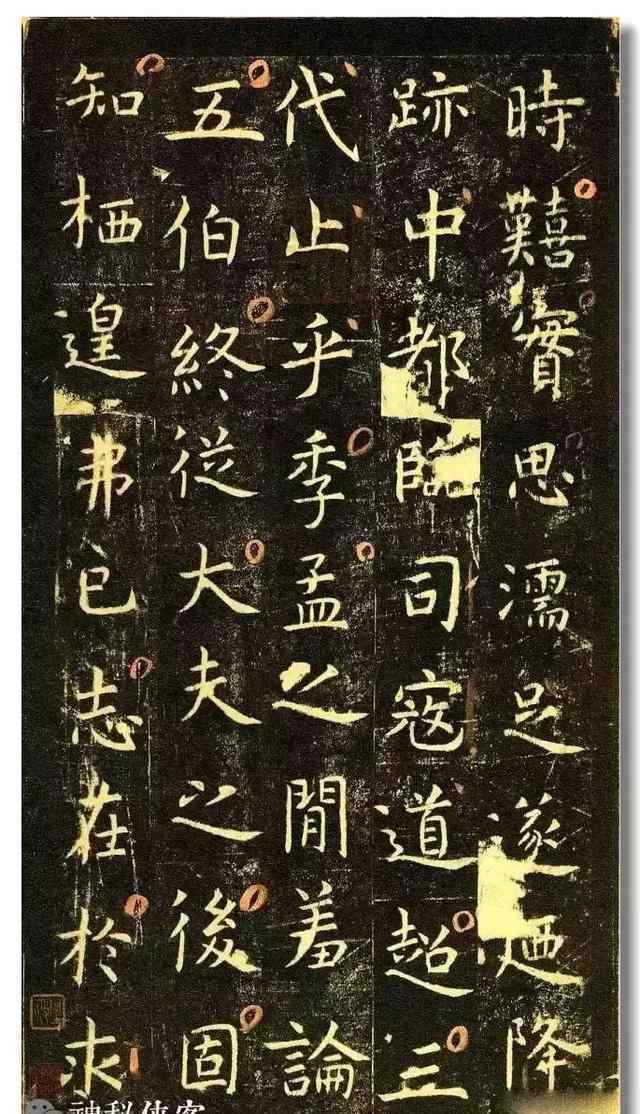 時囏實思濡足遂迺降
跡中都臨司寇道超三
代止乎季孟之閒羞論
五伯終從大夫之後固
知栖遑弗已志在於求